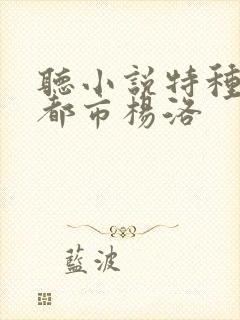 聽小説特種
都市楊洛
藍波